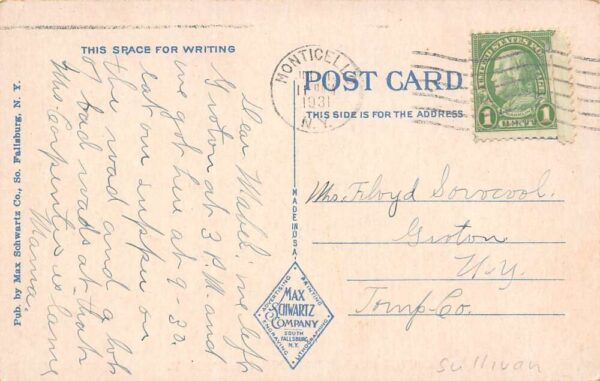 THIS SPACE FOR WRITING
Dear Mabel: we left
Groton at 3 P.M. and
we got here at 9-30.
eat our supper on
the road and a lot
of bad roads at that
Mrs. Carpenter is lame
Mama
Pub. by Max Schwartz Co., So. Fallsburg, N. Y.
MONTICELLO
1931
N.Y.
POST CARD
THIS SIDE IS FOR THE ADDRESS
UNITED STATES POSTAGE
FRANKLIN
1 CENT 1
MADE IN U.S.A.
ADVERTISING
PRINTING
MAX
SCHWARTZ
COMPANY
SOUTH
FALLSBURG
N.Y.
ENGRAVING
LITHOGRAPHING
Mrs. Floyd Sovocool.
Groton
N.Y.
Tomp. Co.
Sullivan